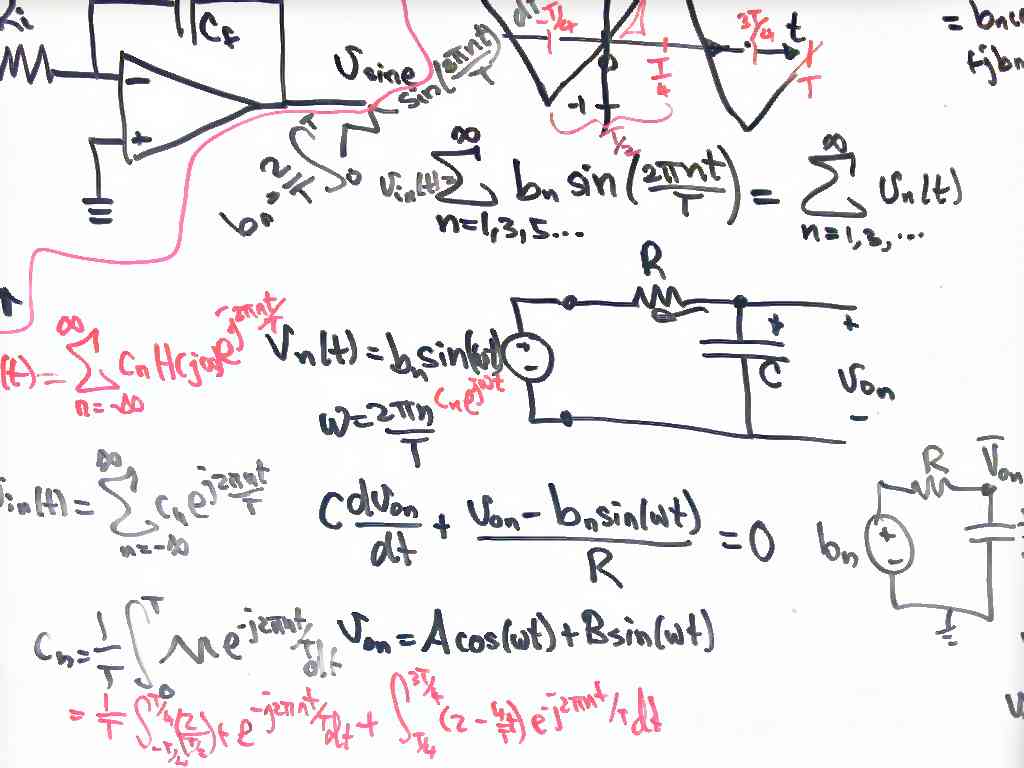 R_i
C_f
V_sine
dt -T/4
T/4
3T/4 t
T
-1
T/2
= b_n
+jb_n
b_n = 2/T ∫_0^T sin(2πnt/T)
v_in(t) = ∑_{n=1,3,5...}^∞ b_n sin(2πnt/T) = ∑_{n=1,3,...}^∞ v_n(t)
(t) = ∑_{n=-∞}^∞ C_n H(jω) e^{j2πnt/T}
V_n(t) = b_n sin(ωt)
C_n e^{jωt}
ω = 2πn/T
R
+
-
C
+
+
V_on
-
v_in(t) = ∑_{n=-∞}^∞ C_n e^{j2πnt/T}
C dv_on/dt + (v_on - b_n sin(ωt))/R = 0
R V_on
b_n
+
-
C_n = 1/T ∫_0^T e^{-j2πnt/T} dt
V_on = A cos(ωt) + B sin(ωt)
= 1/T ∫ e^{-j2πnt/T} dt + ∫_{T/4}^{3T/4} (2 - 4t/T) e^{-j2πnt/T} dt